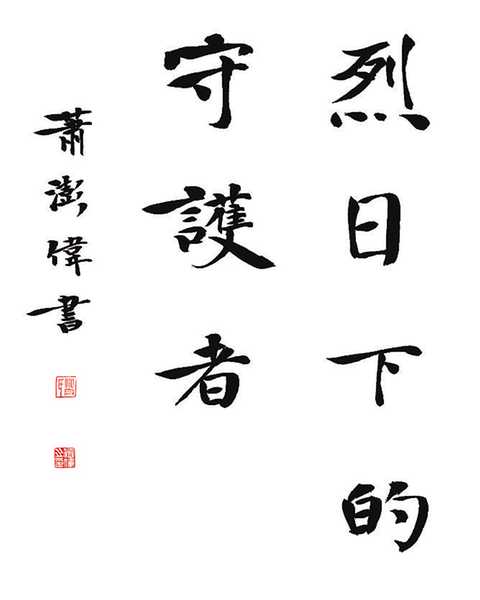 烈日下的
守護者
蕭澎偉書